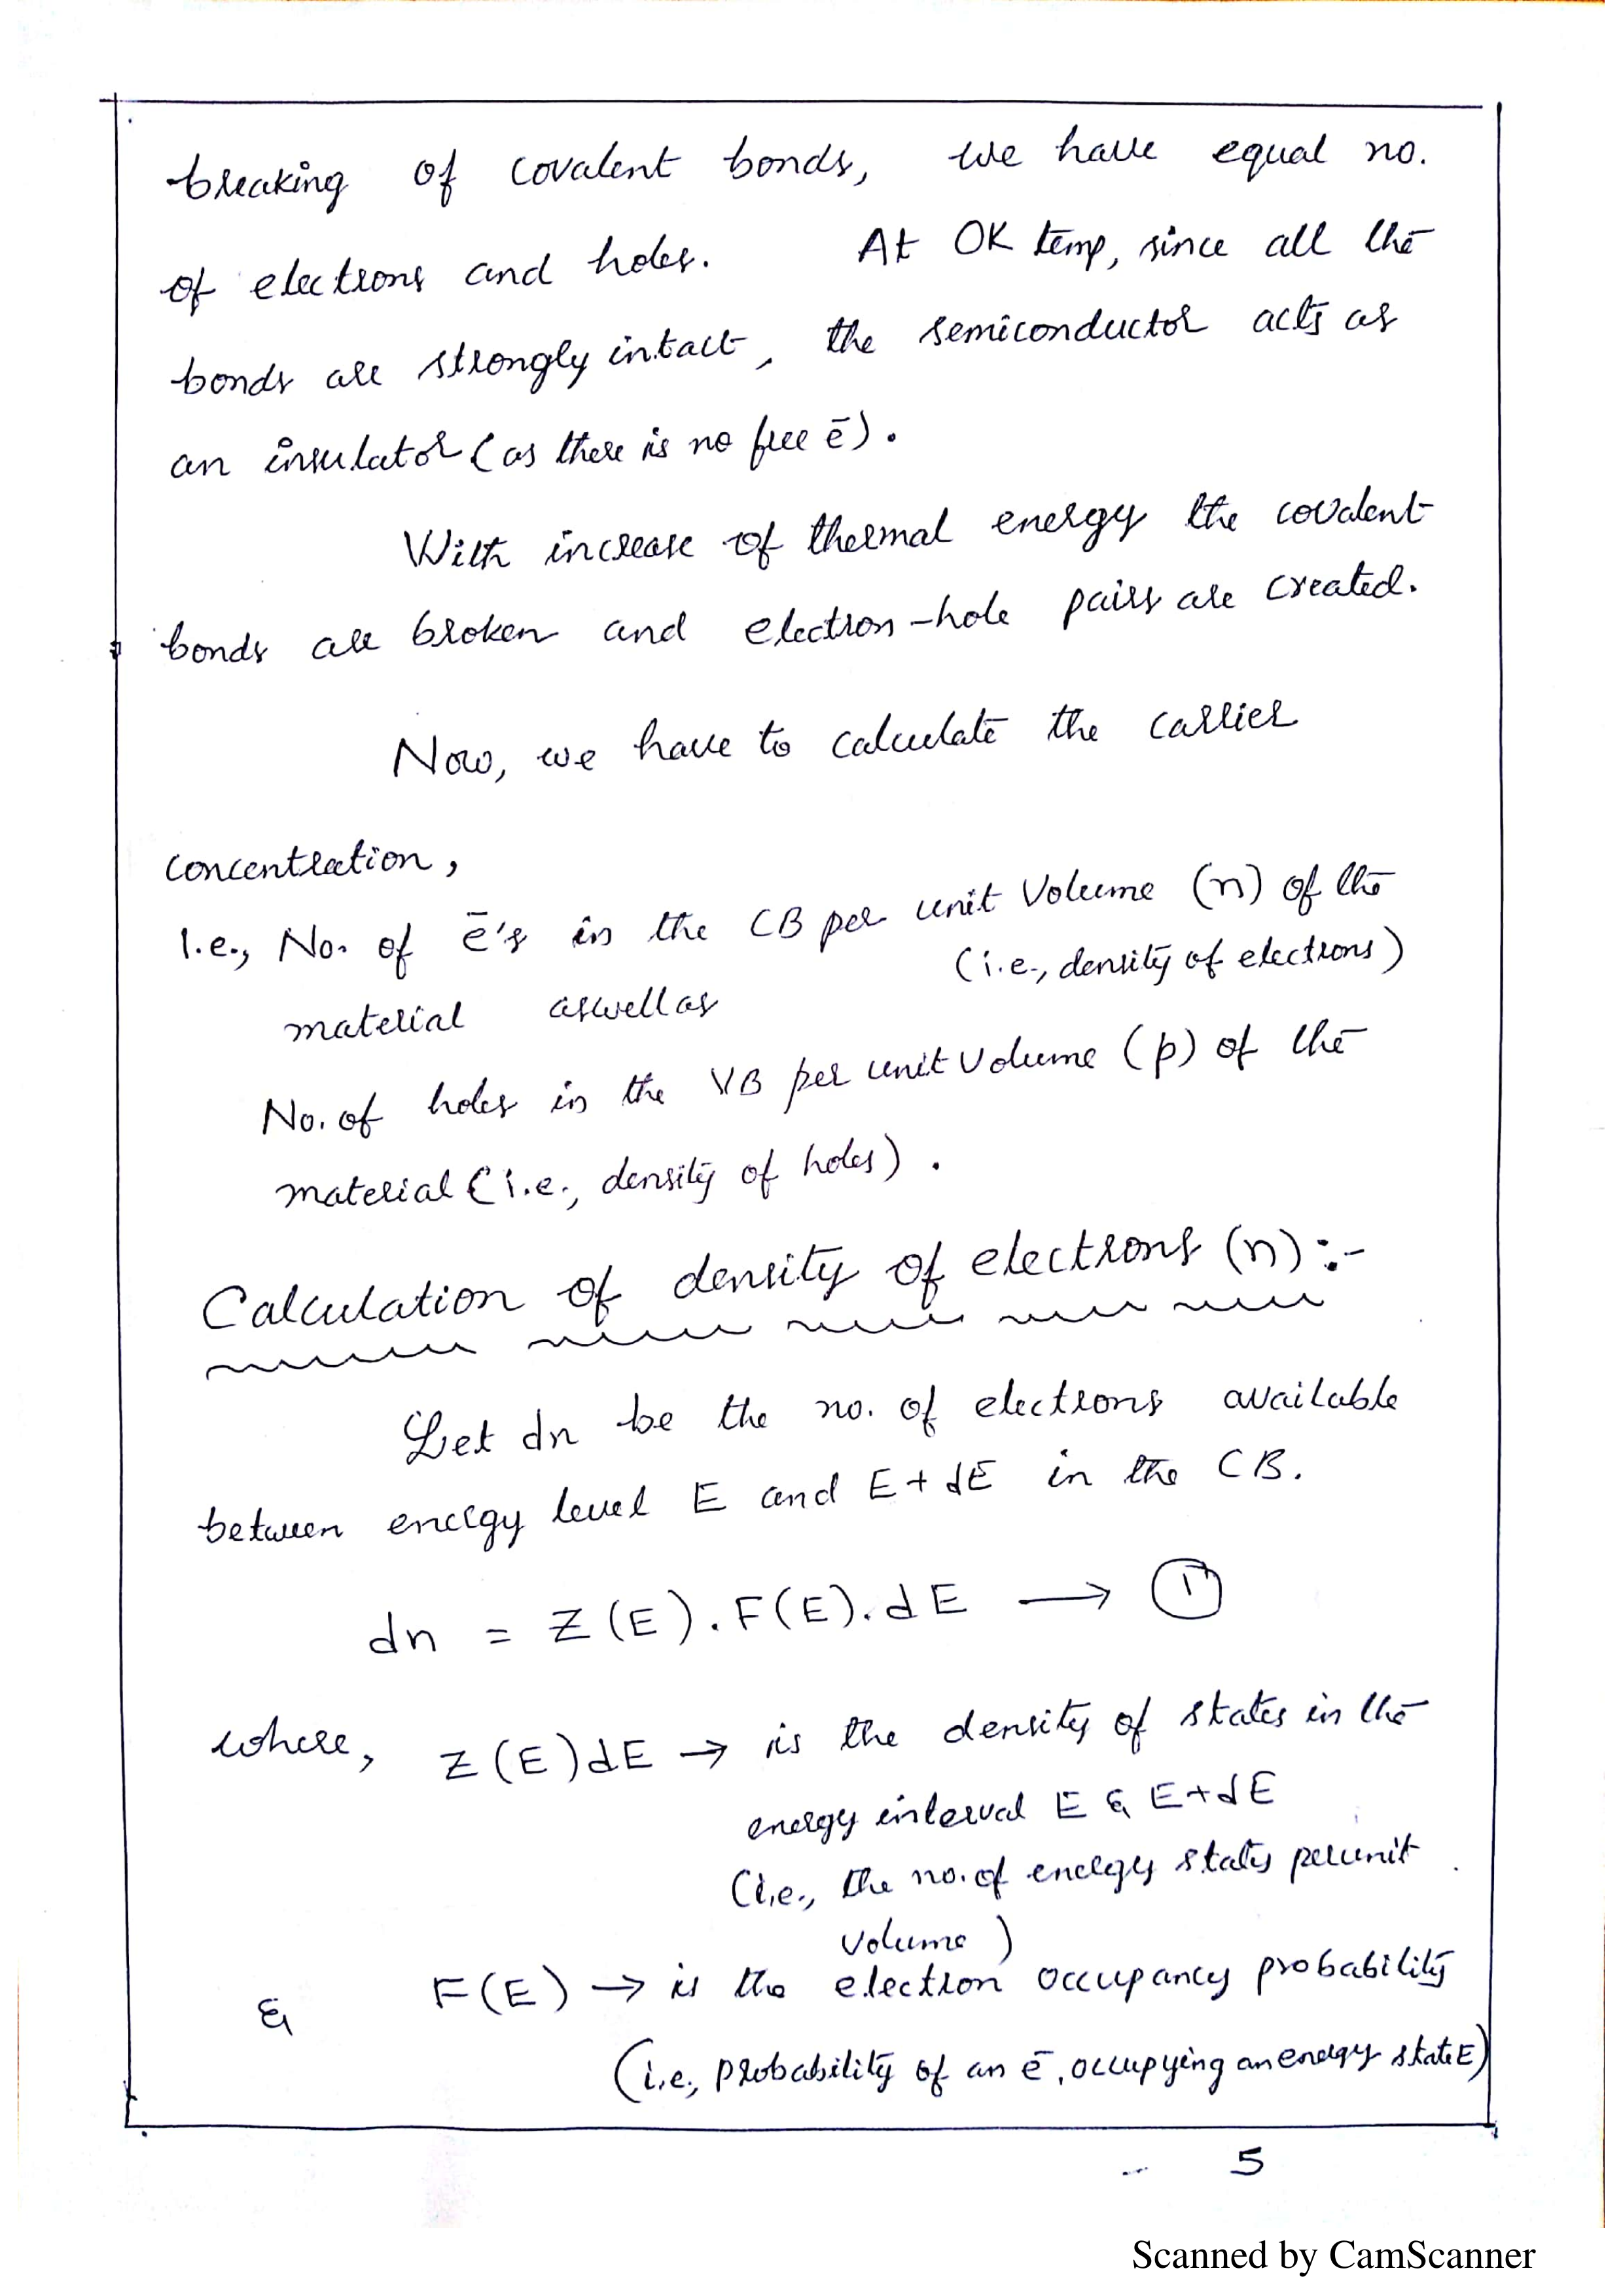 breaking of covalent bonds, we have equal no.
of electrons and holes. At 0K temp, since all the
bonds are strongly intact, the semiconductor acts as
an insulator (as there is no free ē).
With increase of thermal energy the covalent
bonds are broken and electron-hole pairs are created.
Now, we have to calculate the carrier
concentration,
I.e., No. of ē's in the CB per unit Volume (n) of the
(i.e., density of electrons)
material aswellas
No. of holes in the VB per unit volume (p) of the
material (i.e., density of holes).
Calculation of density of electrons (n):-
Let dn be the no. of electrons available
between energy level E and E+dE in the CB.
dn = Z(E).F(E).dE → ①
where, Z(E)dE → is the density of states in the
energy interval E & E+dE
(i.e., the no. of energy states perunit
volume)
& F(E) → is the electron occupancy probability
(i.e., probability of an ē, occupying an energy state E)
5
Scanned by CamScanner